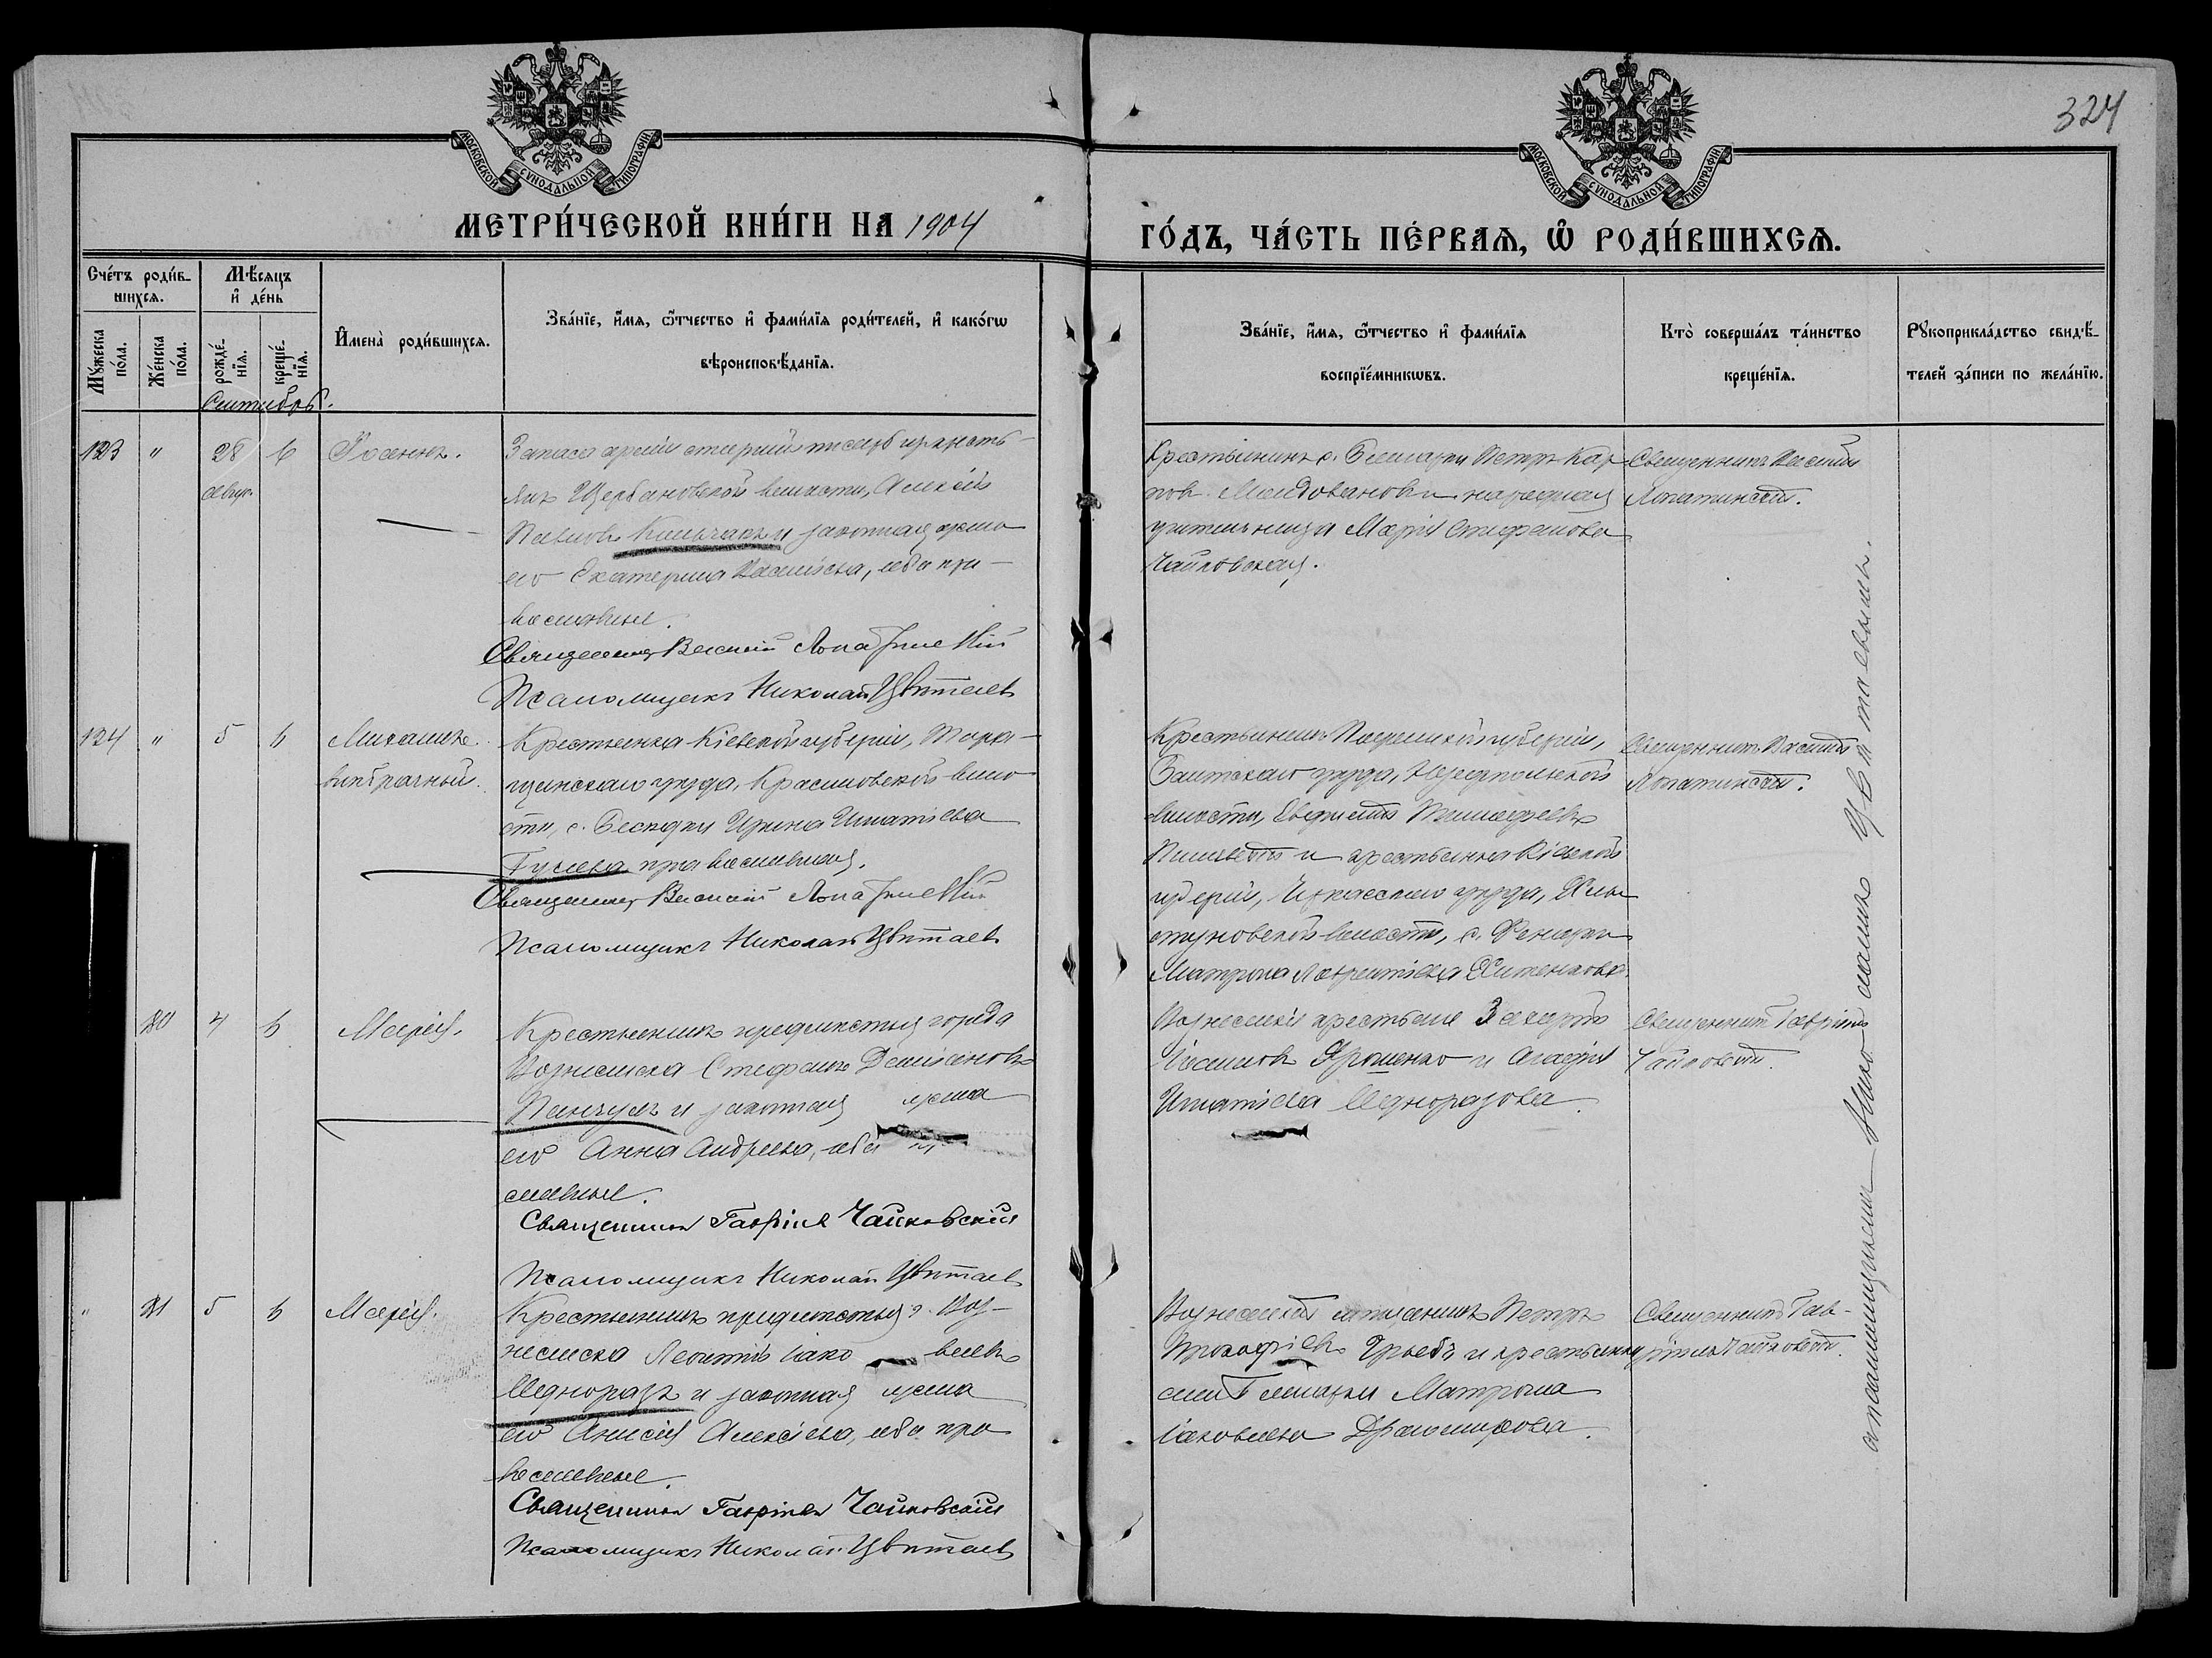 324
МОСКОВСКОЙ СѴНОДАЛЬНОЙ ТИПОГРАФІИ
МОСКОВСКОЙ СѴНОДАЛЬНОЙ ТИПОГРАФІИ
МЕТРИ́ЧЕСКОЙ КНИ́ГИ НА 1904
ГО́ДЪ, ЧА́СТЬ ПЕ́РВАѦ, Ѽ РОДИ́ВШИХСѦ.
Сче́тъ роди́в-
шихсѧ.
Мѣ́сѧцъ
и҆ де́нь
Мꙋ́жеска
по́ла.
Же́нска
по́ла.
рожде́-
нїѧ.
креще́-
нїѧ.
И҆мена̀ роди́вшихсѧ.
Зва́нїе, и҆́мѧ, ѻ҆́тчество и҆ фами́лїѧ роди́телей, и҆ како́гѡ
вѣроисповѣ́данїѧ.
Зва́нїе, и҆́мѧ, ѻ҆́тчество и҆ фами́лїѧ
воспрїе́мникѡвъ.
Кто̀ соверша́лъ та́инство
креще́нїѧ.
Рꙋкоприкла́дство свидѣ́-
телей за́писи по жела́нїю.
Сентябрь.
123 " 28 6
авг.
Запаса арміи старшій писарь изъ кресть-
янъ Щербановской волости, Алексѣй
Павловъ Кильчакъ и законная жена
его Екатерина Васильева, оба пра-
вославные.
Священникъ Василій Лопатинскій
Псаломщикъ Николай Цвѣтаевъ
Крестьянинъ с. Петръ Кар-
повъ и народная
учительница Марія Стефанова
Чайковская.
Священникъ Василій
Лопатинскій.
124 " 5 6
Михаилъ
внѣбрачный.
Крестьянка Кіевской губерніи, Тара-
щанскаго уѣзда, Красиловской воло-
сти, с. Бесѣдки Ирина Игнатіева
Гусева православная.
Священникъ Василій Лопатинскій
Псаломщикъ Николай Цвѣтаевъ
Крестьянинъ Подольской губерніи,
Балтскаго уѣзда,
волости, Тимофеевъ
и крестьянка Кіевской
губерніи, Черкасскаго уѣзда,
волости, с.
Матрона Лаврентіева
Священникъ Василій
Лопатинскій.
80 4 6
Марія.
Крестьянинъ предмѣстья города
Вознесенска Стефанъ Даміановъ
Панчукъ и законная жена
его Анна Андреева, оба
славные.
Священникъ Гавріилъ Чайковскій
Псаломщикъ Николай Цвѣтаевъ
Вознесенскіе крестьяне Захарій
Ярошенко и Агафія
Игнатіева Щедноразова.
Священникъ Гавріилъ
Чайковскій.
" 81 5 6
Марія.
Крестьянинъ предмѣстья г. Воз-
несенска Леонтій Іаковлевъ
Щедноразъ и законная жена
его Анисія Алексіева, оба пра
вославные.
Священникъ Гавріилъ Чайковскій
Псаломщикъ Николай Цвѣтаевъ
Вознесенскій мѣщанинъ Петръ
Прокофіевъ и крестьянка
Матрона
Іаковлева Драгомирова.
Священникъ Гав-
ріилъ Чайковскій.
съ псаломщикомъ Николаемъ Цвѣтаевымъ.